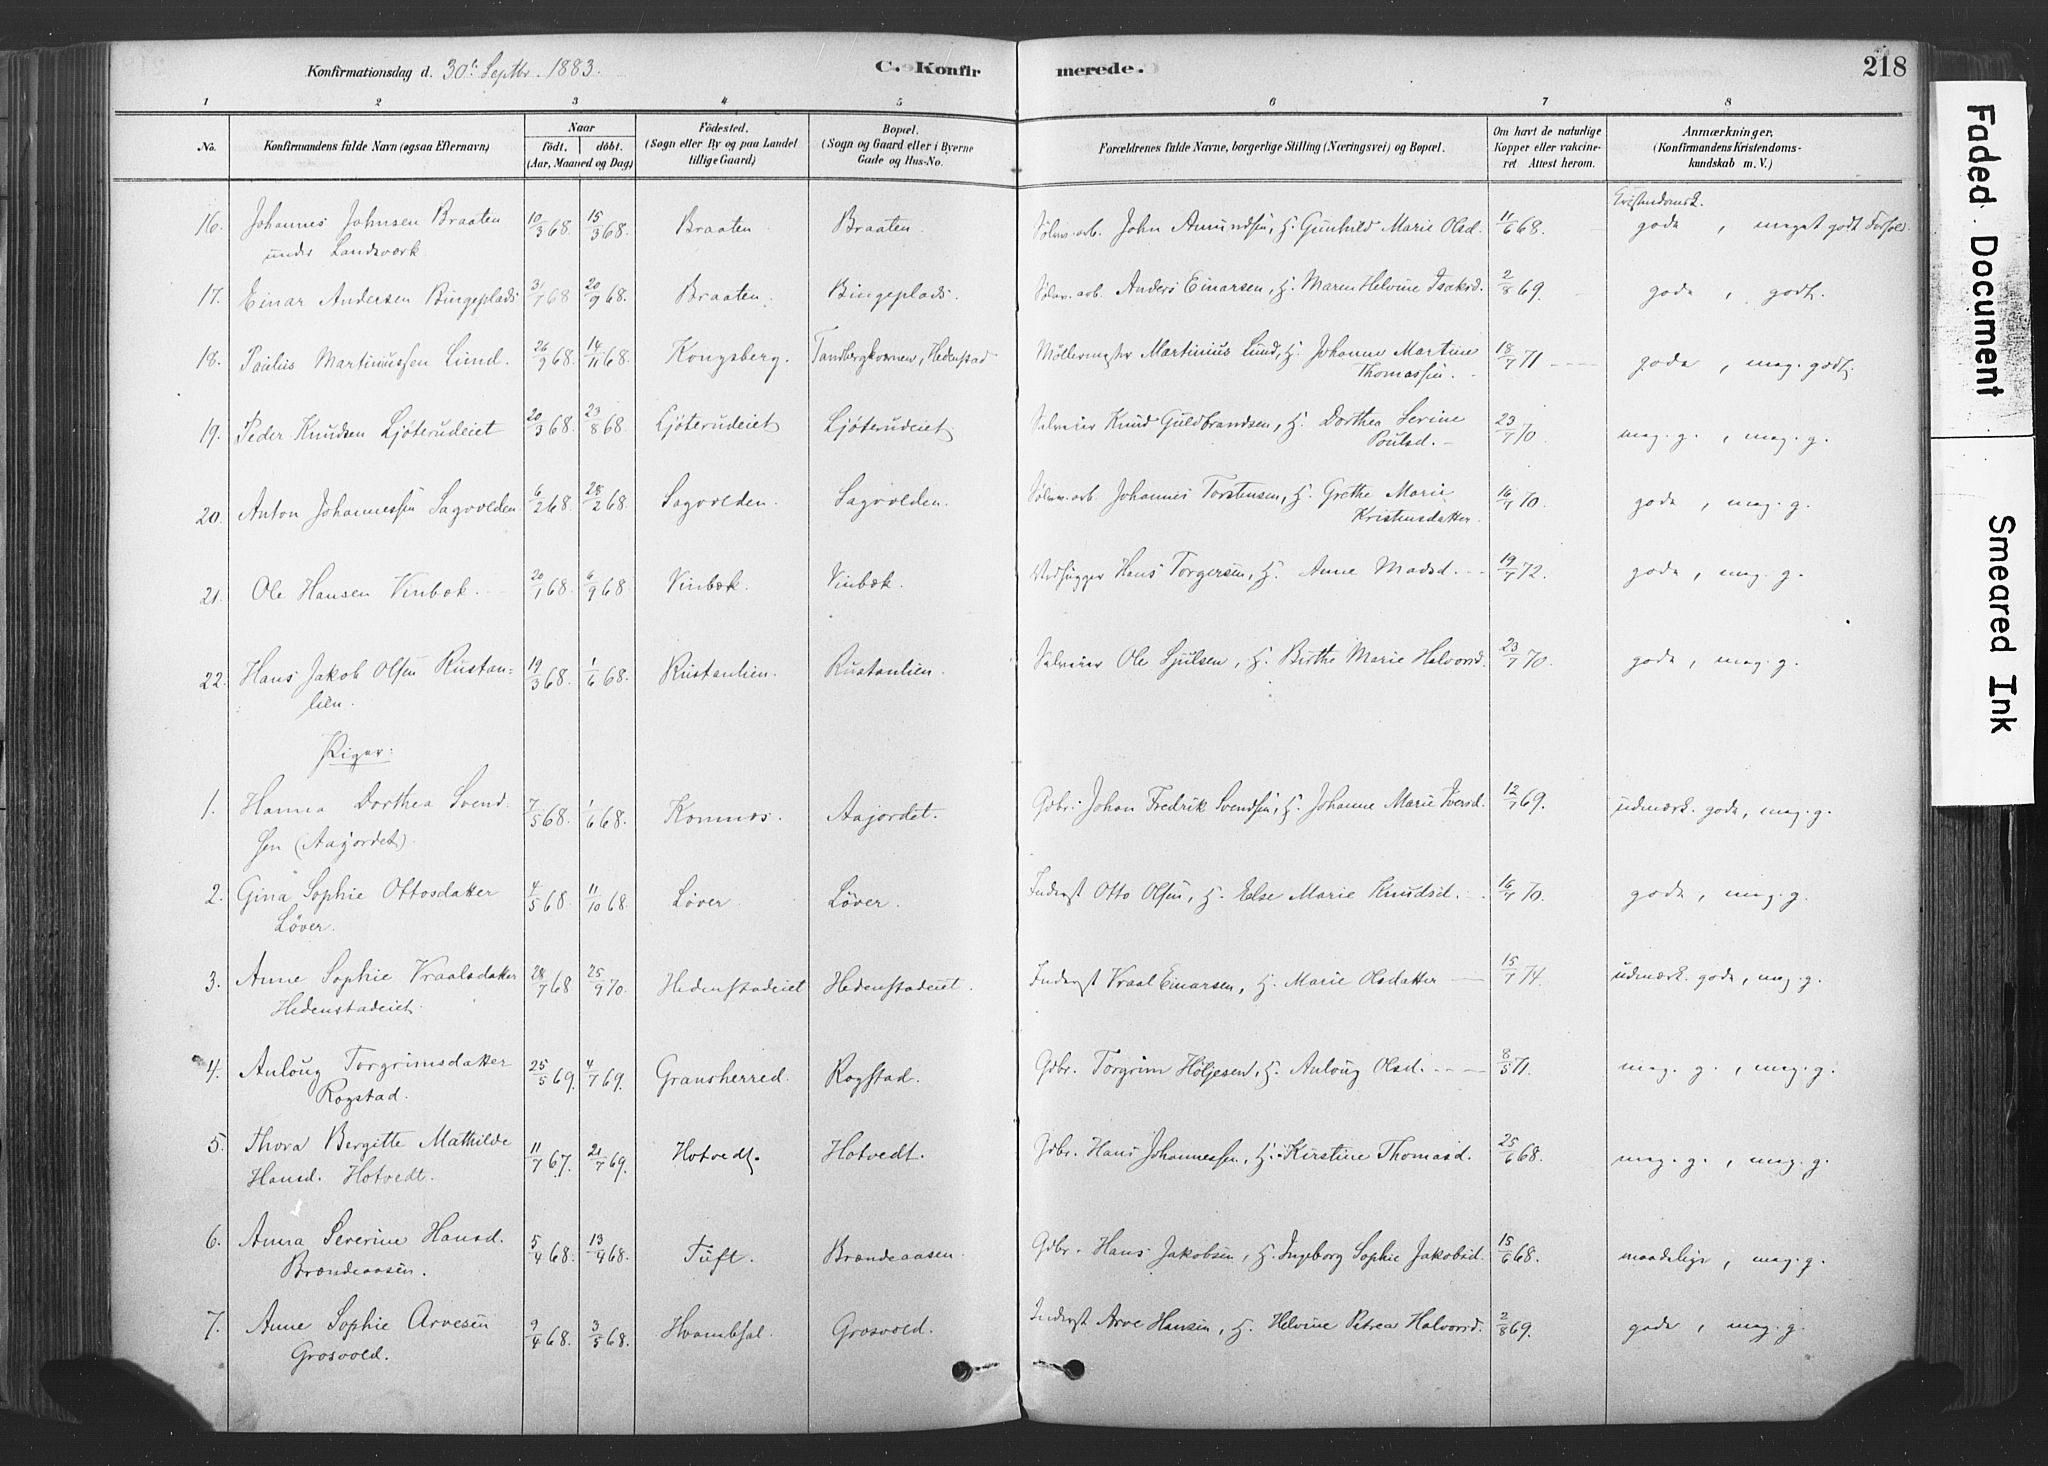 Konfirmationsdag d. 30t Septbr. 1883.
C. Konfirmerede.
218
1 2 3 4 5 6 7 8
No.
Konfirmandens fulde Navn (ogsaa Efternavn)
Naar
födt. döbt.
(Aar, Maaned og Dag)
Födested.
(Sogn eller By og paa Landet
tillige Gaard)
Bopæl.
(Sogn og Gaard eller i Byerne
Gade og Hus-No.
Forældrenes fulde Navne, borgerlige Stilling (Næringsvei) og Bopæl.
Om havt de naturlige
Kopper eller vakcine-
ret. Attest herom.
Anmærkninger.
(Konfirmandens Kristendoms-
kundskab m. V.)
Kristendomsk.
16. Johannes Johnsen Braaten 10/3 68. 15/3 68. Braaten. Braaten. Sølvv. arb. John Amundsen, H. Gunhild Marie Olsd. 11/6 68. gode, meget godt Forhold.
under Landsværk
17. Einar Andersen Bingeplads 31/7 68 20/9 68. Braaten. Bingeplads. Sølvv. arb. Anders Einarsen, H. Maren Helvine Isaksd. 2/8 69. gode, godt.
18. Paulus Martinussen Lund. 26/9 68. 14/11 68. Kongsberg. Tandbergkværnen, Hedenstad Møllermester Martinius Lund, H. Johanne Martine 18/7 71 gode, meg. godt.
Thomassen.
19. Peder Knudsen Ljøterudeiet 20/3 68. 23/8 68. Ljøterudeiet Ljøterudeiet. Selveier Knud Guldbrandsen, H. Dorthea Serine 23/7 70. meg. g., meg. g.
Poulsd.
20. Anton Johannessen Sagvolden 6/2 68. 28/2 68. Sagvolden. Sagvolden. Sølvv. arb. Johannes Torstensen, H. Grethe Marie 16/7 70. gode, meg. g.
Kristensdatter.
21. Ole Hansen Vinbæk. 20/1 68. 6/9 68. Vinbæk. Vinbæk. Vedhugger Hans Torgersen, H. Anne Madsd. 19/7 72. gode, meg. g.
22. Hans Jakob Olsen Rustan- 19/3 68. 1/6 68. Rustanlien. Rustanlien. Selveier Ole Ljulsen, H. Birthe Marie Halvorsd. 23/7 70. gode, meg. g.
lien.
Piger.
1. Hanna Dorthea Svend- 7/5 68. 1/6 68. Komnæs. Aajordet. Gdbr. Johan Fredrik Svendsen, H. Johanne Marie Iversd. 12/7 69. udmærk. gode, meg. g.
sen (Aajordet).
2. Gina Sophie Ottosdatter 4/5 68. 11/10 68. Løver. Løver. Inderst Otto Olsen, H. Else Marie Knudsd. 16/7 70. gode, meg. g.
Løver.
3. Anne Sophie Vraalsdatter 28/7 68. 25/9 70. Hedenstadeiet Hedenstadeiet. Inderst Vraal Einarsen, H. Marie Olsdatter 15/7 74. udmærk. gode, meg. g.
Hedenstadeiet.
4. Anloug Torgrimsdatter 25/5 69. 4/7 69. Gransherred. Rogstad. Gdbr. Torgrim Höljesen, H. Anloug Olsd. 8/5 71. meg. g., meg. g.
Rogstad.
5. Thora Bergitte Mathilde 11/7 67. 21/7 69. Hotvedt. Hotvedt. Gdbr. Hans Johannessen, H. Kirstine Thomasd. 25/6 68. meg. g., meg. g.
Hansd. Hotvedt.
6. Anna Severine Hansd. 5/4 68. 13/4 68. Tuft. Brændeaasen. Gdbr. Hans Jakobsen, H. Ingeborg Sophie Jakobsd. 15/6 68. maadelige, meg. g.
Brændeaasen.
7. Anne Sophie Arvesen 9/4 68. 3/5 68. Hvambsal. Grosvold. Inderst Arve Hansen, H. Helvine Petrea Halvorsd. 2/8 69. gode, meg. g.
Grosvold.
Faded Document
Smeared Ink